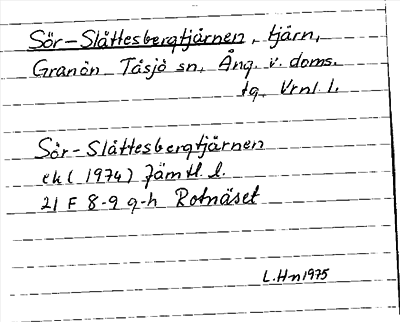 Sör-Slåttesbergtjärnen, tjärn,
Granön Tåsjö sn, Ång. v. doms.
tg, Vrnl. l.
Sör-Slåttesbergtjärnen
ek (1974) Jämtl. l.
21 F 8-9 g-h Rotnäset
L.Hn 1975